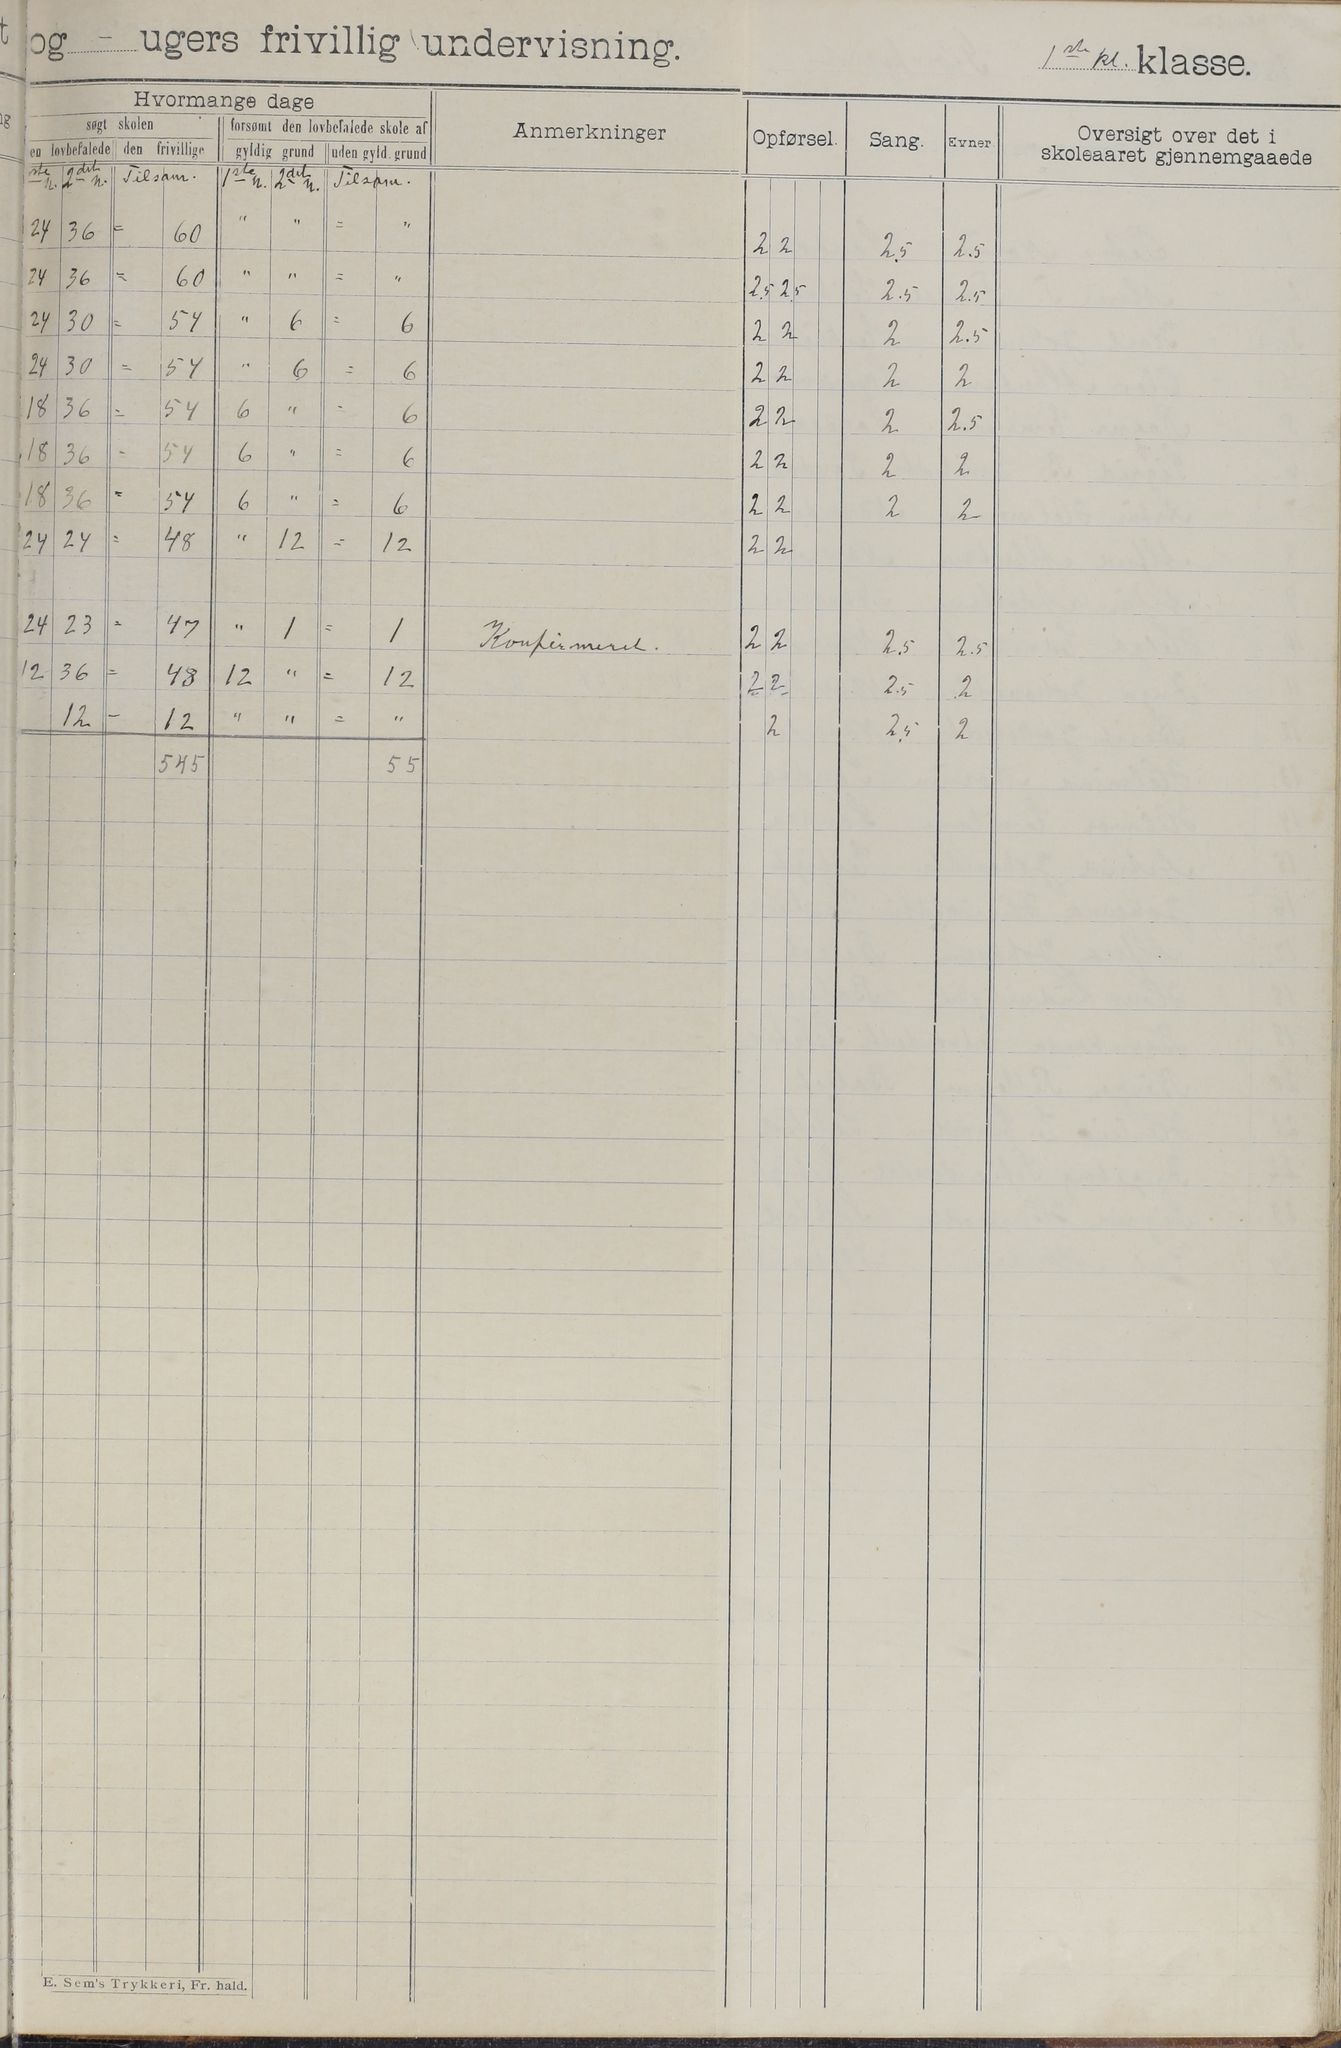 og - ugers frivillig undervisning. 1ste kl. klasse.
Hvormange dage
søgt skolen forsømt den lovbefalede skole af Anmerkninger Opførsel. Sang. Evner. Oversigt over det i skoleaaret gjennemgaaede
en lovbefalede den frivillige gyldig grund uden gyld. grund
ste h. 2det h. Tilsam. 1ste h. 2det h. Tilsam.
24 36 = 60 " " = " 2 2 2.5 2.5
24 36 = 60 " " = " 2.5 2.5 2.5 2.5
24 30 = 54 " 6 = 6 2 2 2 2.5
24 30 = 54 " 6 = 6 2 2 2 2
18 36 = 54 6 " = 6 2 2 2 2.5
18 36 = 54 6 " = 6 2 2 2 2
18 36 = 54 6 " = 6 2 2 2 2
24 24 = 48 " 12 = 12 2 2
24 23 = 47 " 1 = 1 Konfirmeret. 2 2 2.5 2.5
12 36 = 48 12 " = 12 2 2 2.5 2
12 - 12 " " = " 2 2.5 2
545 55
E. Sem's Trykkeri, Fr. hald.